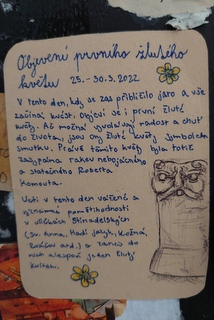 Objevení prvního žlutého
květu 25.-30.3.2022
V tento den, kdy se zas přiblížilo jaro a vše
začíná kvést. Objeví se i první žluté
květy. Ač možná vyvolávají radost a chuť
do života, jsou ony žluté květy symbolem
smutku. Právě těmito květy byla totiž
zasypána rakev nebojácného
a statečného Roberta
Komouta.
Uctí v tento den vážené a
významné pamětihodnosti
v uličkách Stínadelských
(Sv. Anna, Had. jazyk, Kožná,
ard.) a zanes do
nich alespoň jeden žlutý
kvítek.